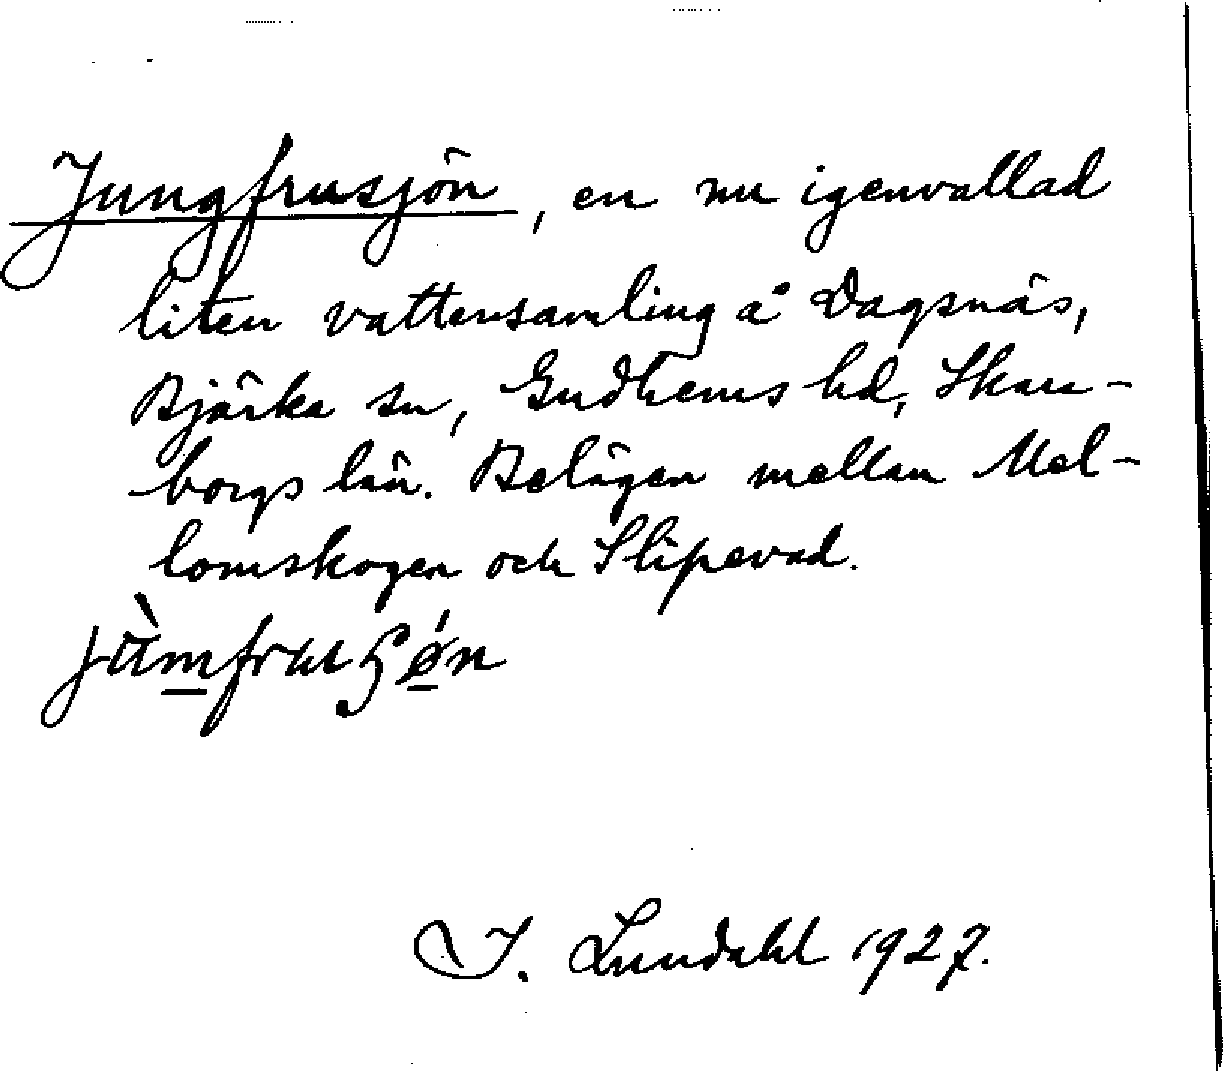 Jungfrusjön, en nu igenvallad
liten vattensamling å Dagsnäs,
Bjärka sn, Gudhems hd, Skara-
borgs län. Belägen mellan Mel-
lomskogen och Slipevad.
I. Lundahl 1927.